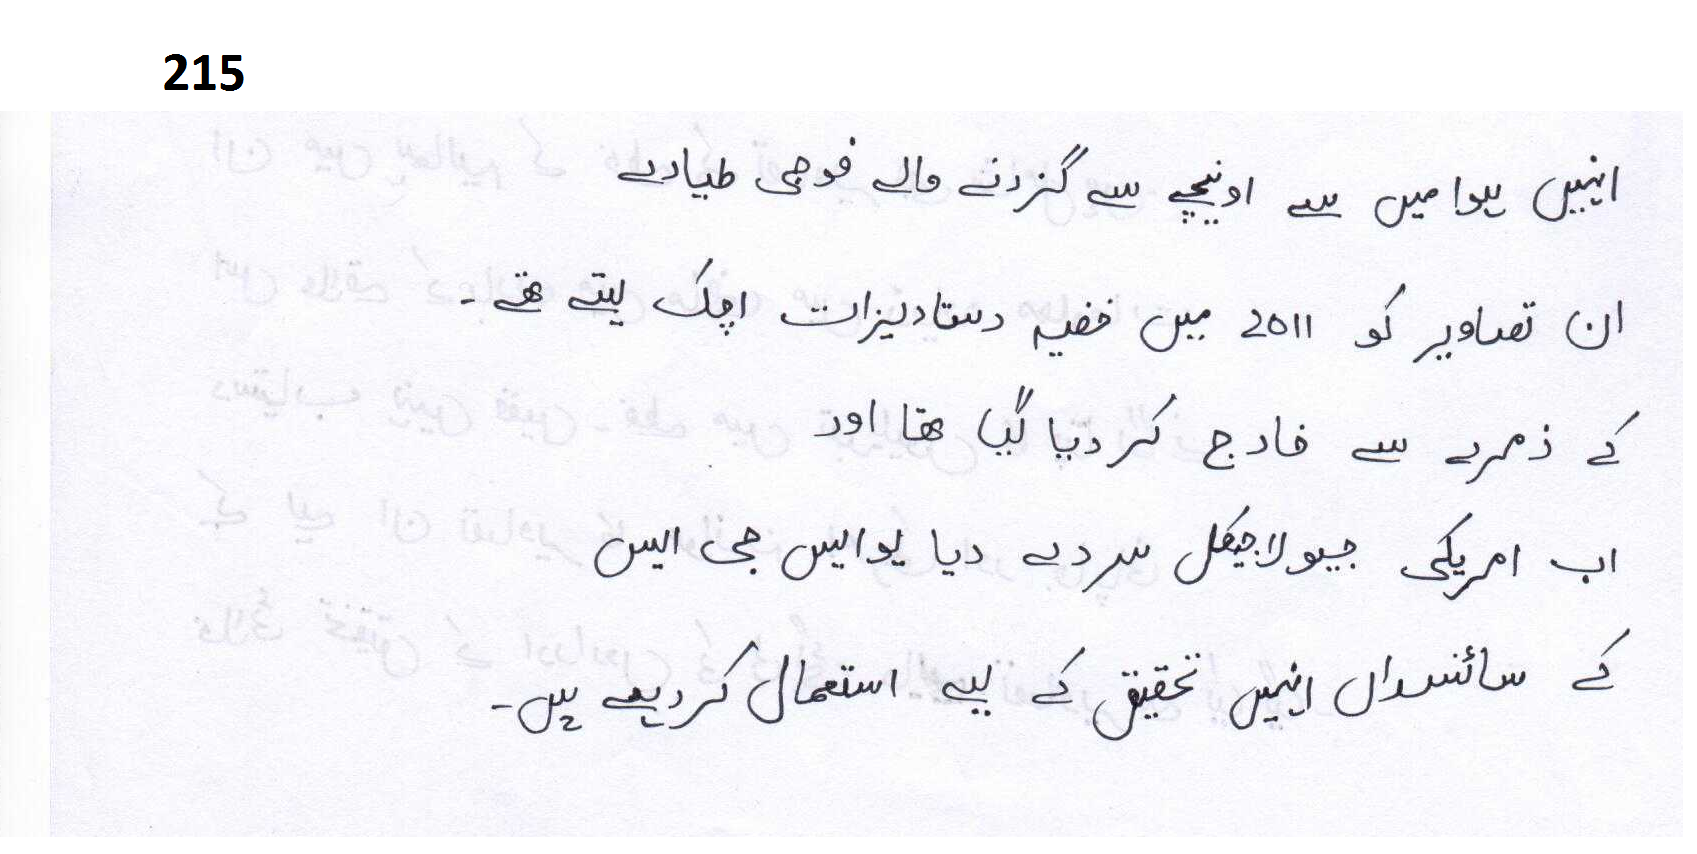 215
انہیں ہوا میں سے اونچے سے گزرنے والے فوجی طیارے
ان تصاویر کو 2011 میں خفیہ دستاویزات اچک لیتے تھے۔
کے زمرے سے خارج کر دیا گیا تھا اور
اب امریکی جیولاجیکل سروے دیا یو ایس جی ایس
کے سائنسداں انہیں تحقیق کے لیے استعمال کر رہے ہیں۔